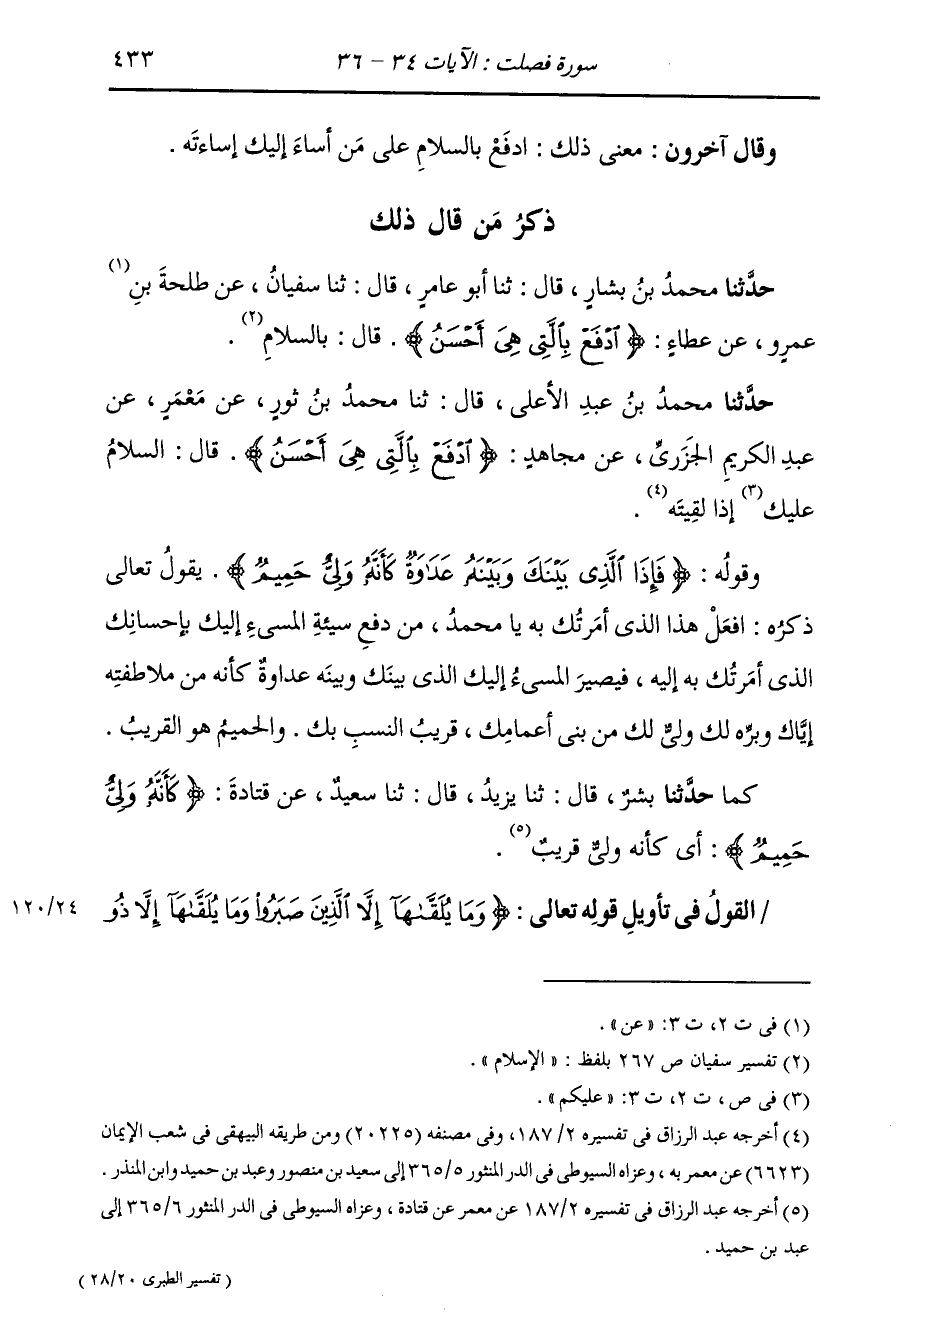 سورة فصلت : الآيات ٣٤ - ٣٦
٤٣٣
وقال آخرون : معنى ذلك : ادفَعْ بالسلامِ على مَن أساءَ إليك إساءتَه .
ذكرُ مَن قال ذلك
حدَّثنا محمدُ بنُ بشارٍ ، قال : ثنا أبو عامرٍ ، قال : ثنا سفيانُ ، عن طلحةَ بنِ(١)
عمرٍو ، عن عطاءٍ : ﴿ ٱدۡفَعۡ بِٱلَّتِى هِىَ أَحۡسَنُ ﴾ . قال : بالسلامِ(٢) .
حدَّثنا محمدُ بنُ عبدِ الأعلى ، قال : ثنا محمدُ بنُ ثورٍ ، عن مَعْمَرٍ ، عن
عبدِ الكريمِ الجَزَرىِّ ، عن مجاهدٍ : ﴿ ٱدۡفَعۡ بِٱلَّتِى هِىَ أَحۡسَنُ ﴾ . قال : السلامُ
عليك(٣) إذا لقِيتَه(٤) .
وقولُه : ﴿ فَإِذَا ٱلَّذِى بَيۡنَكَ وَبَيۡنَهُۥ عَدَٰوَةٞ كَأَنَّهُۥ وَلِىٌّ حَمِيمٞ ﴾ . يقولُ تعالى
ذكرُه : افعَلْ هذا الذى أمَرتُك به يا محمدُ ، من دفعِ سيئةِ المسىءِ إليك بإحسانِك
الذى أمَرتُك به إليه ، فيصيرَ المسىءُ إليك الذى بينَك وبينَه عداوةٌ كأنه من ملاطفتِه
إيَّاك وبرِّه لك ولىٌّ لك من بنى أعمامِك ، قريبُ النسبِ بك . والحميمُ هو القريبُ .
كما حدَّثنا بشرٌ ، قال : ثنا يزيدُ ، قال : ثنا سعيدٌ ، عن قتادةَ : ﴿ كَأَنَّهُۥ وَلِىٌّ
حَمِيمٞ ﴾ : أى كأنه ولىٌّ قريبٌ(٥) .
/ القولُ فى تأويلِ قولِه تعالى : ﴿ وَمَا يُلَقَّىٰهَآ إِلَّا ٱلَّذِينَ صَبَرُواْ وَمَا يُلَقَّىٰهَآ إِلَّا ذُو
١٢٠/٢٤
(١) فى ت ٢، ت ٣: «عن» .
(٢) تفسير سفيان ص ٢٦٧ بلفظ : « الإسلام » .
(٣) فى ص ، ت ٢، ت ٣: «عليكم» .
(٤) أخرجه عبد الرزاق فى تفسيره ١٨٧/٢، وفى مصنفه (٢٠٢٢٥) ومن طريقه البيهقى فى شعب الإيمان
(٦٦٢٣) عن معمر به ، وعزاه السيوطى فى الدر المنثور ٣٦٥/٥ إلى سعيد بن منصور وعبد بن حميد وابن المنذر .
(٥) أخرجه عبد الرزاق فى تفسيره ١٨٧/٢ عن معمر عن قتادة ، وعزاه السيوطى فى الدر المنثور ٣٦٥/٦ إلى
عبد بن حميد .
( تفسير الطبرى ٢٨/٢٠ )